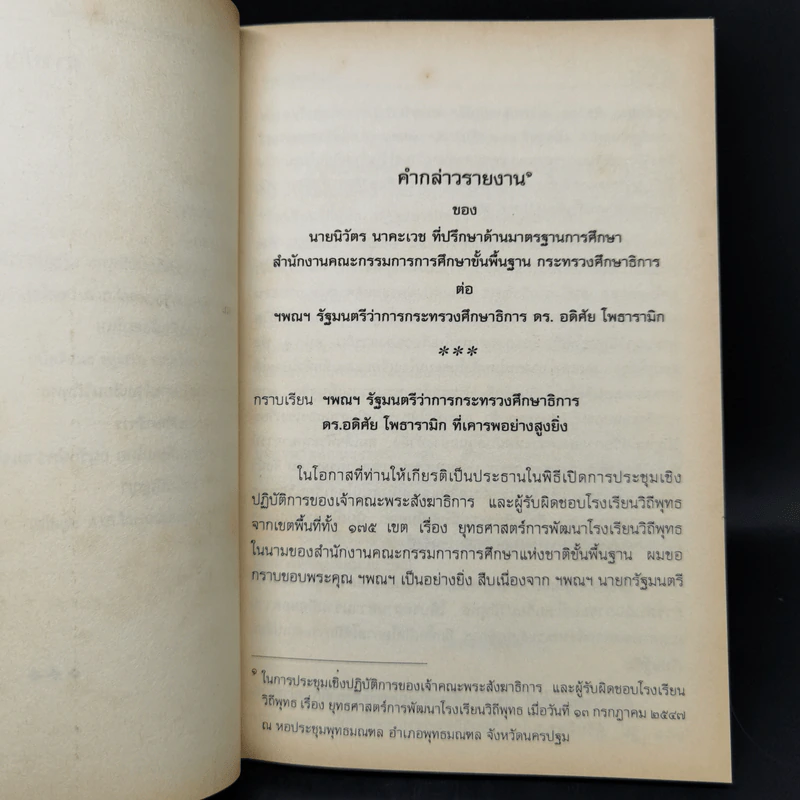 คำกล่าวรายงาน๑
ของ
นายนิวัตร นาคะเวช ที่ปรึกษาด้านมาตรฐานการศึกษา
สำนักงานคณะกรรมการการศึกษาขั้นพื้นฐาน กระทรวงศึกษาธิการ
ต่อ
ฯพณฯ รัฐมนตรีว่าการกระทรวงศึกษาธิการ ดร. อดิศัย โพธารามิก
***
กราบเรียน ฯพณฯ รัฐมนตรีว่าการกระทรวงศึกษาธิการ
ดร.อดิศัย โพธารามิก ที่เคารพอย่างสูงยิ่ง
ในโอกาสที่ท่านให้เกียรติเป็นประธานในพิธีเปิดการประชุมเชิง
ปฏิบัติการของเจ้าคณะพระสังฆาธิการ และผู้รับผิดชอบโรงเรียนวิถีพุทธ
จากเขตพื้นที่ทั้ง ๑๗๕ เขต เรื่อง ยุทธศาสตร์การพัฒนาโรงเรียนวิถีพุทธ
ในนามของสำนักงานคณะกรรมการการศึกษาแห่งชาติขั้นพื้นฐาน ผมขอ
กราบขอบพระคุณ ฯพณฯ เป็นอย่างยิ่ง สืบเนื่องจาก ฯพณฯ นายกรัฐมนตรี
๑ ในการประชุมเชิงปฏิบัติการของเจ้าคณะพระสังฆาธิการ และผู้รับผิดชอบโรงเรียน
วิถีพุทธ เรื่อง ยุทธศาสตร์การพัฒนาโรงเรียนวิถีพุทธ เมื่อวันที่ ๑๓ กรกฎาคม ๒๕๔๗
ณ หอประชุมพุทธมณฑล อำเภอพุทธมณฑล จังหวัดนครปฐม